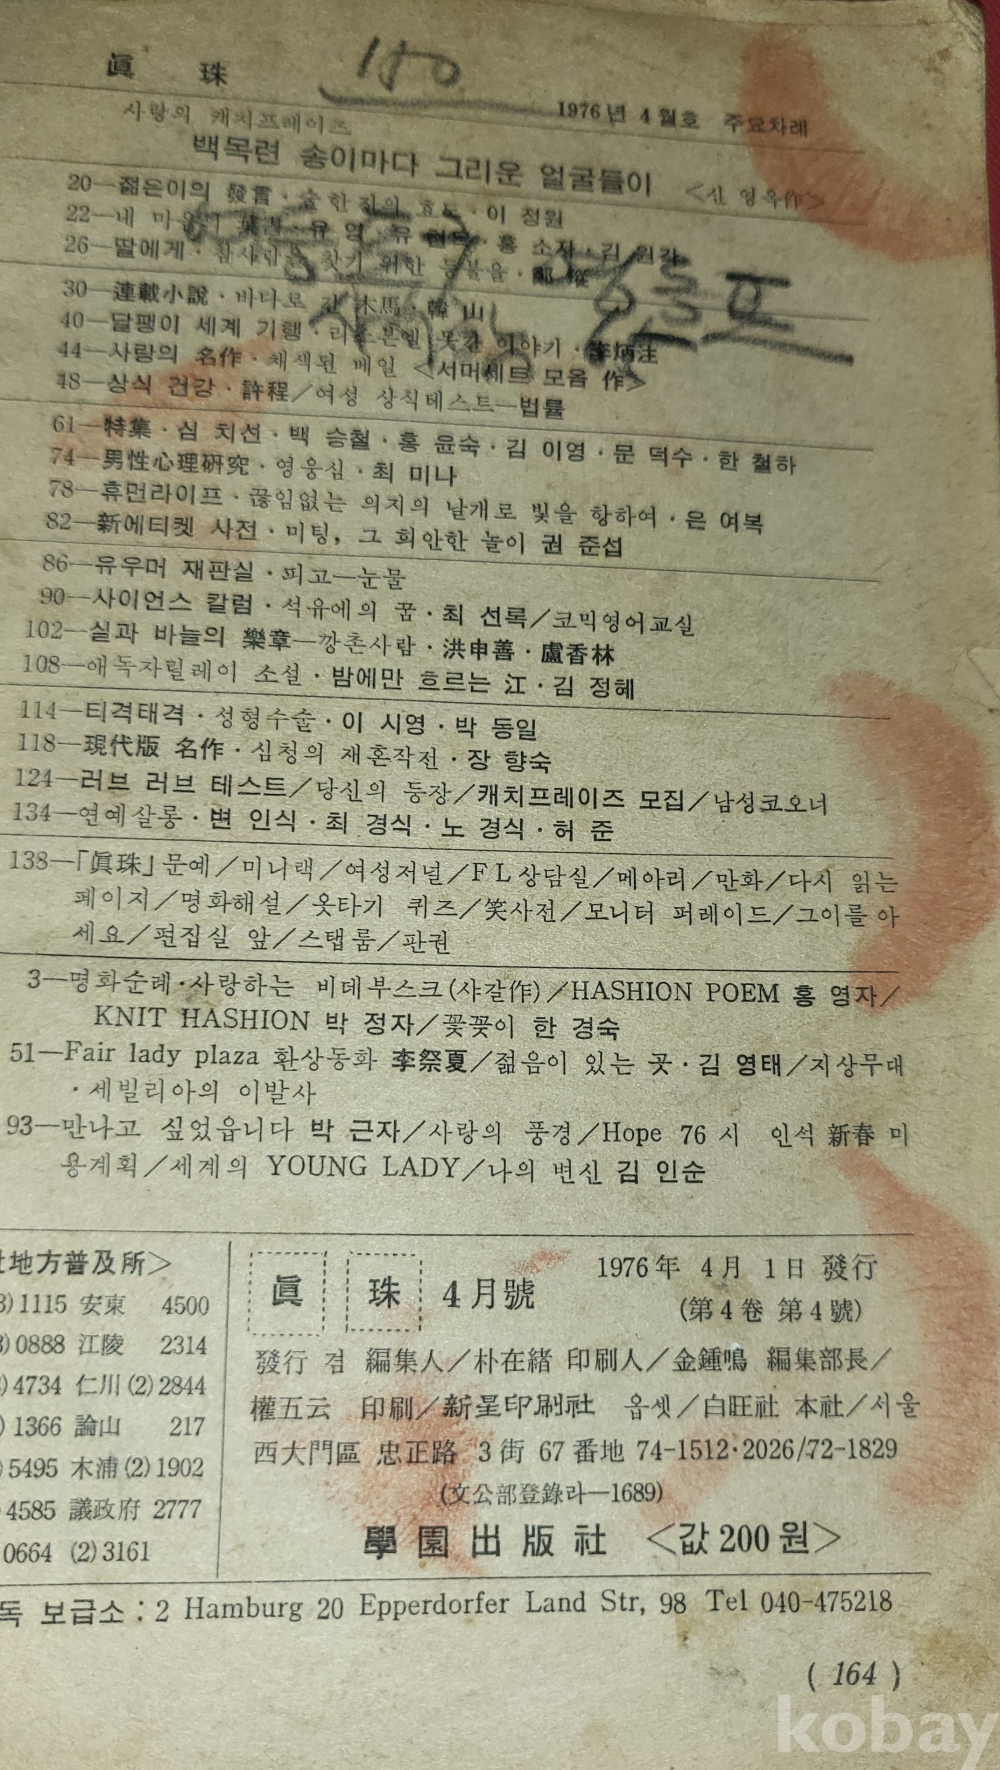 眞 珠
150
1976년 4월호 주요차례
사랑의 캐치프레이즈
백목련 송이마다 그리운 얼굴들이 <신 영옥作>
20—젊은이의 發言· 이 정원
22—내 홍 소자·김 원각
26—딸에게·참사랑을 찾기 위한 등불을·鄭
30—連載小說·바다로 간 木馬·韓 山
40—달팽이 세계 기행· 이야기·李炳注
44—사랑의 名作·채색된 베일 <서머세트 모옴 作>
48—상식 건강·許程/여성 상식테스트—법률
61—特集·심 치선·백 승철·홍 윤숙·김 이영·문 덕수·한 철하
74—男性心理硏究·영웅심·최 미나
78—휴먼라이프·끊임없는 의지의 날개로 빛을 향하여·은 여복
82—新에티켓 사전·미팅, 그 희안한 놀이 권 준섭
86—유우머 재판실·피고—눈물
90—사이언스 칼럼·석유에의 꿈·최 선록/코믹영어교실
102—실과 바늘의 樂章—깡촌사람·洪申善·盧香林
108—애독자릴레이 소설·밤에만 흐르는 江·김 정혜
114—티격태격·성형수술·이 시영·박 동일
118—現代版 名作·심청의 재혼작전·장 향숙
124—러브 러브 테스트/당신의 등장/캐치프레이즈 모집/남성코오너
134—연예살롱·변 인식·최 경식·노 경식·허 준
138—「眞珠」문예/미니랙/여성저널/FL상담실/메아리/만화/다시 읽는
페이지/명화해설/옷타기 퀴즈/笑사전/모니터 퍼레이드/그이를 아
세요/편집실 앞/스탭룸/판권
3—명화순례·사랑하는 비데부스크(샤갈作)/HASHION POEM 홍 영자/
KNIT HASHION 박 정자/꽃꽂이 한 경숙
51—Fair lady plaza 환상동화 李祭夏/젊음이 있는 곳·김 영태/지상무대
·세빌리아의 이발사
93—만나고 싶었읍니다 박 근자/사랑의 풍경/Hope 76 시 인석 新春 미
용계획/세계의 YOUNG LADY/나의 변신 김 인순
地方普及所>
3)1115 安東 4500
3)0888 江陵 2314
)4734 仁川(2)2844
)1366 論山 217
)5495 木浦(2)1902
4585 議政府 2777
0664 (2)3161
眞 珠 4月號
1976年 4月 1日 發行
(第4卷 第4號)
發行 겸 編集人/朴在緖 印刷人/金鍾鳴 編集部長/
權五云 印刷/新星印刷社 옵셋/白旺社 本社/서울
西大門區 忠正路 3街 67番地 74-1512·2026/72-1829
(文公部登錄라—1689)
學園出版社 <값 200원>
독 보급소 : 2 Hamburg 20 Epperdorfer Land Str, 98 Tel 040-475218
( 164 )
kobay